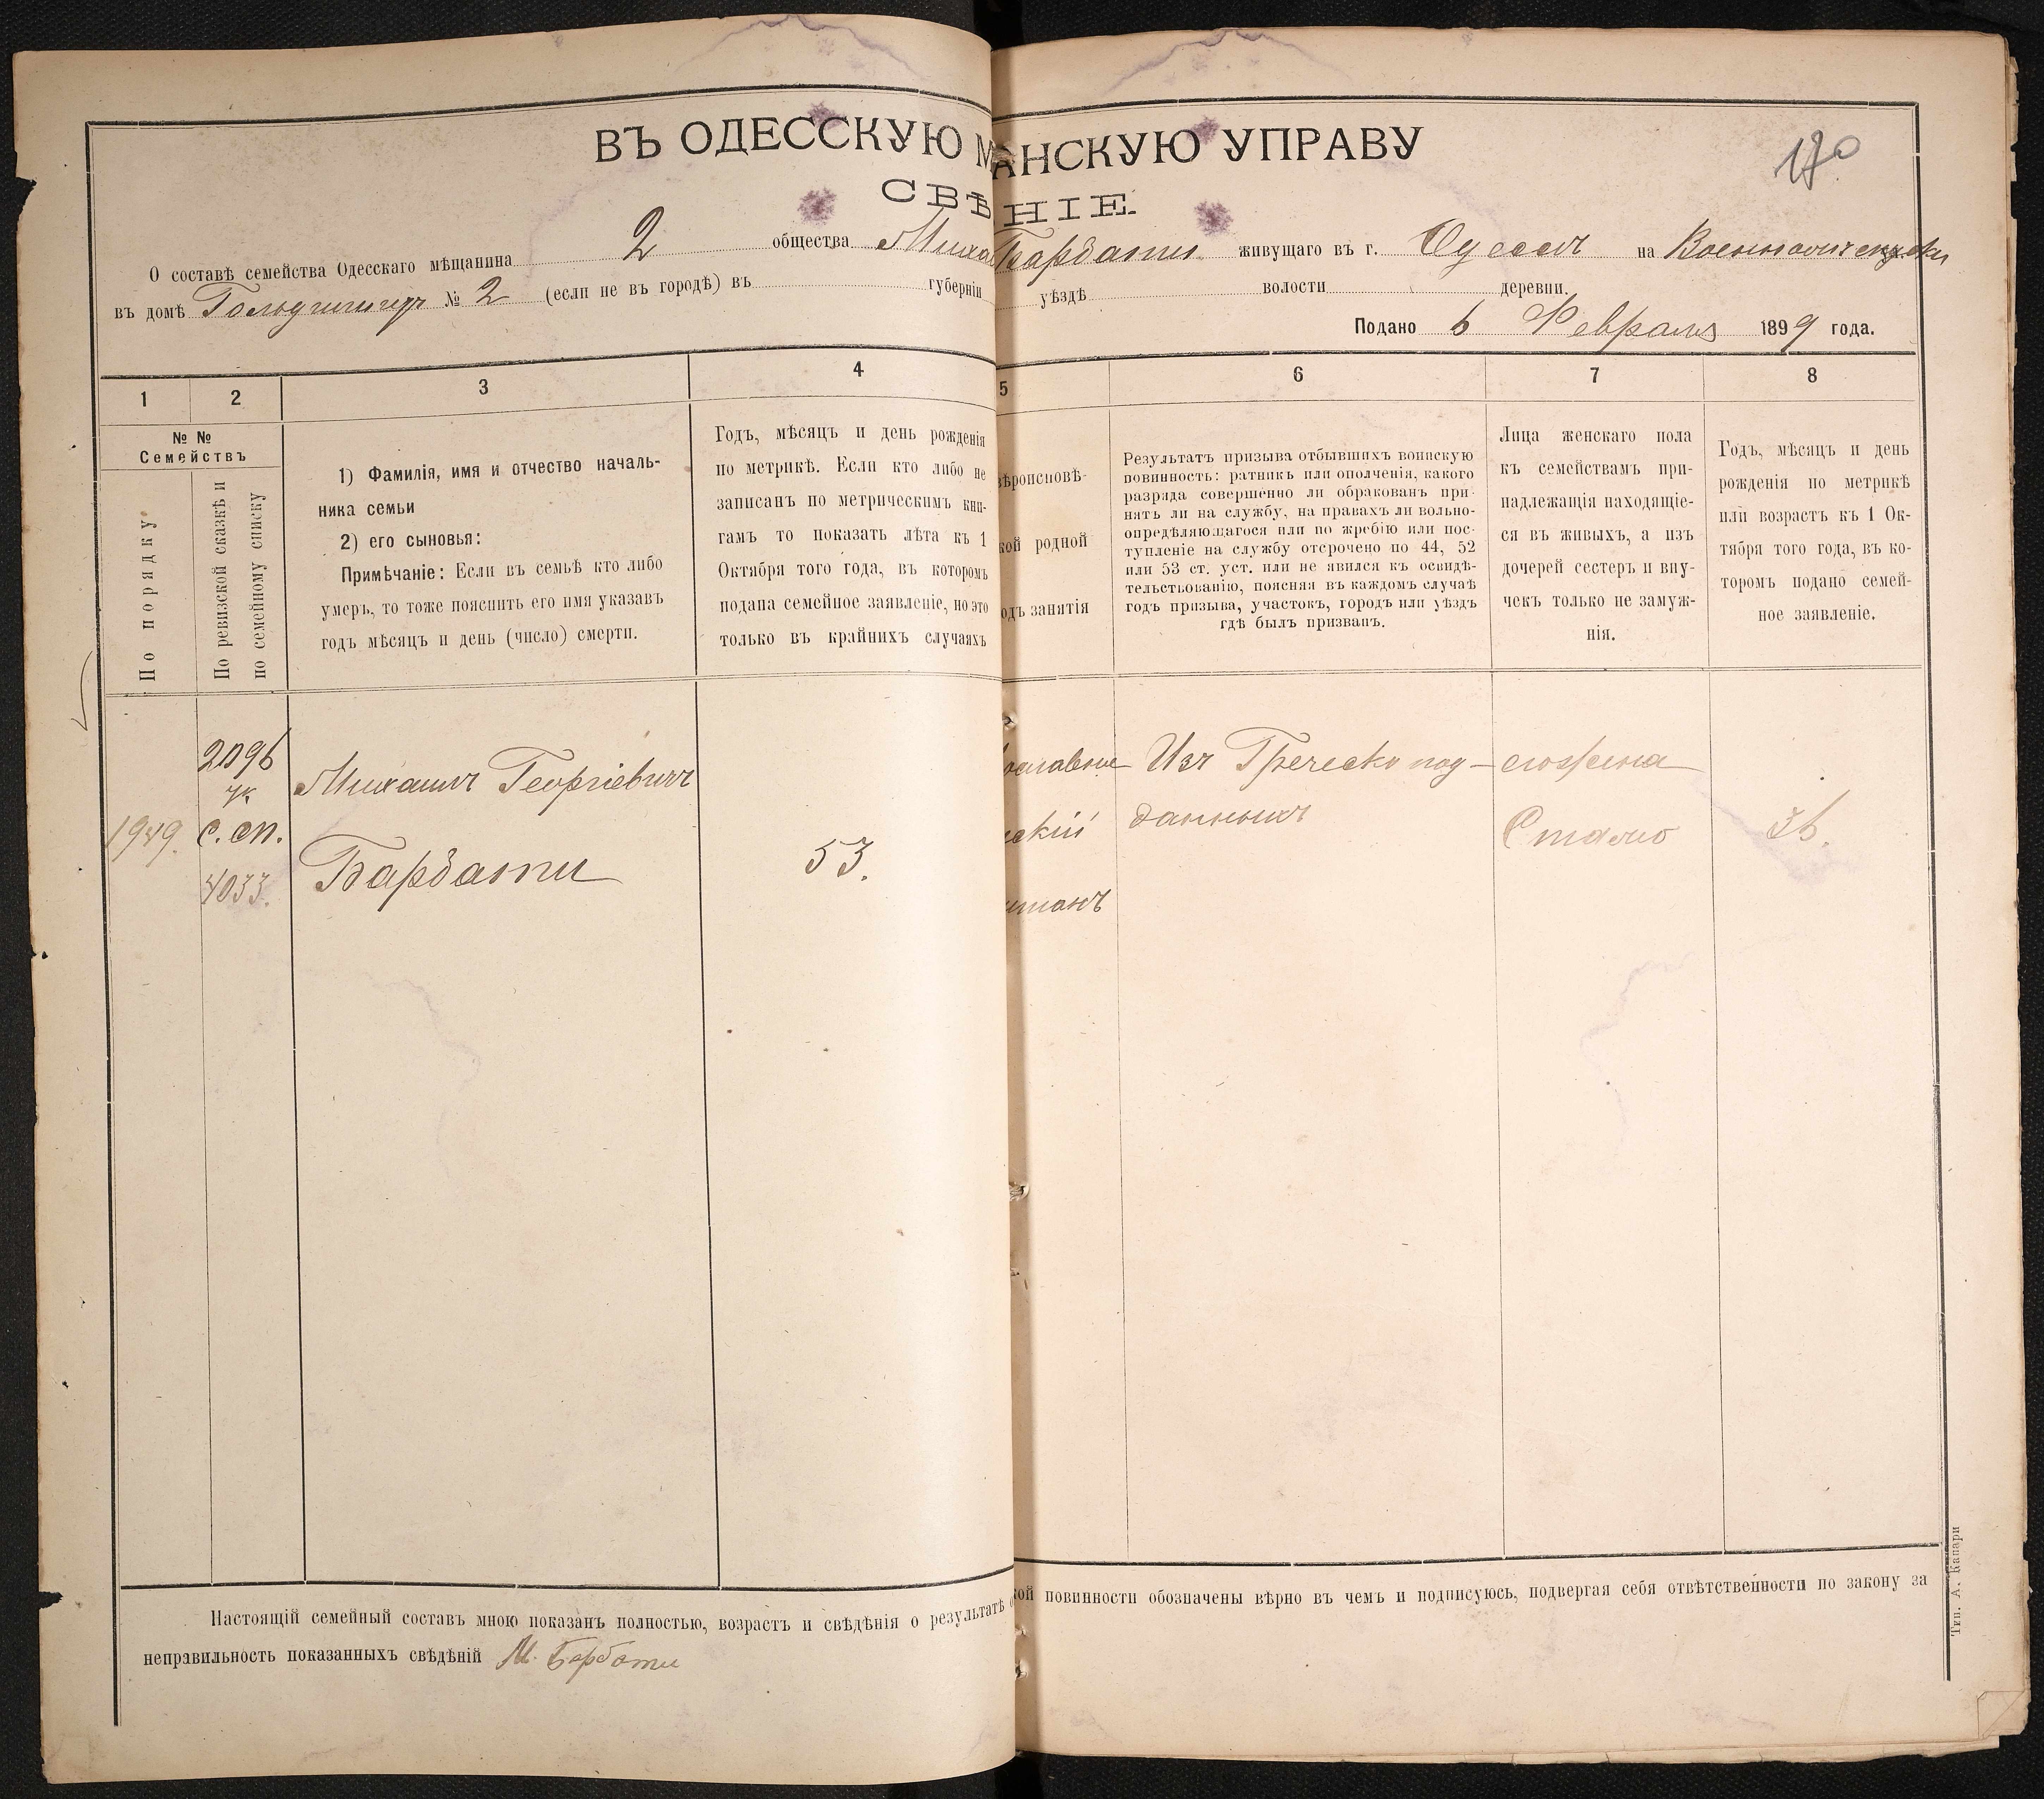 170
ВЪ ОДЕССКУЮ М АНСКУЮ УПРАВУ
СВѢ НІЕ.
О составѣ семейства Одесскаго мѣщанина 2 общества Миха Барбати живущаго въ г. Одессѣ на
въ домѣ № 2 (если не въ городѣ) въ губерніи уѣздѣ волости деревни.
Подано 6 Февраля 1899 года.
1 2 3 4 5 6 7 8
№ №
Семействъ
По порядку
По ревизской сказкѣ и
по семейному списку
1) Фамилія, имя и отчество началь-
ника семьи
2) его сыновья:
Примѣчаніе: Если въ семьѣ кто либо
умеръ, то тоже пояснить его имя указавъ
годъ мѣсяцъ и день (число) смерти.
Годъ, мѣсяцъ и день рожденія
по метрикѣ. Если кто либо не
записанъ по метрическимъ кни-
гамъ то показать лѣта къ 1
Октября того года, въ которомъ
подана семейное заявленіе, но это
только въ крайнихъ случаяхъ
вѣроисповѣ-
кой родной
одъ занятія
Результатъ призыва отбывшихъ воинскую
повинность: ратникъ или ополченія, какого
разряда совершенно ли обракованъ при-
нятъ ли на службу, на правахъ ли вольно-
опредѣляющагося или по жребію или пос-
тупленіе на службу отсрочено по 44, 52
или 53 ст. уст. или не явился къ освидѣ-
тельствованію, поясняя въ каждомъ случаѣ
годъ призыва, участокъ, городъ или уѣздъ
гдѣ былъ призванъ.
Лица женскаго пола
къ семействамъ при-
надлежащія находящіе-
ся въ живыхъ, а изъ
дочерей сестеръ и вну-
чекъ только не замуж-
нія.
Годъ, мѣсяцъ и день
рожденія по метрикѣ
или возрастъ къ 1 Ок-
тября того года, въ ко-
торомъ подано семей-
ное заявленіе.
1949.
2096
с. сп.
4033.
Михаилъ Георгіевичъ
Барбати
53.
ославные
скій
Изъ Греческо под-
данныхъ
его жена
36.
Настоящій семейный составъ мною показанъ полностью, возрастъ и свѣдѣнія о результатѣ о кой повинности обозначены вѣрно въ чемъ и подписуюсь, подвергая себя отвѣтственности по закону за
неправильность показанныхъ свѣдѣній М. Барбати
Тип. А. Капари